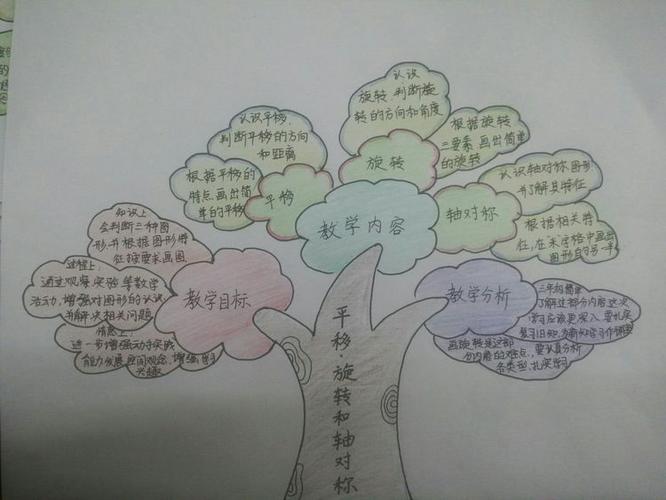 平移、旋转和轴对称
教学内容
平移
认识平移,
判断平移的方向
和距离
根据平移的
特点画出简
单的平移
旋转
认识
旋转,判断旋
转的方向和角度
根据旋转
三要素画出简单
的旋转
轴对称
认识轴对称图形
并了解其特征
根据相关特
征,在
方格中画出
图形的另一半
教学目标
知识上
会判断三种图
形,并根据图形特
征按要求画图
过程上:
通过观察、实验等数学
活动,增强对图形的认识
并解决相关问题
情感上:
进一步增强动手实践
能力,发展空间观念,增强学习
兴趣
教学分析
三年级简单
了解这部分内容,这次
学习应该更深入,要扎实
复习旧知,为新的学习作铺垫
画旋转是这部
分内容的难点,要认真分析
各类型,扎实学习